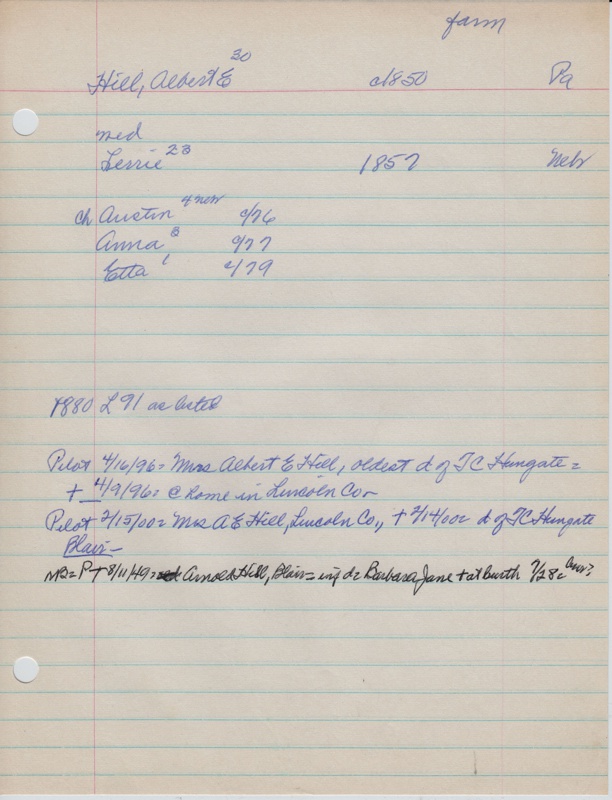 farm
Hill, Albert E 30 c1850 Pa
med
Lessie 23 1857 Nebr
ch Austin 4 Nebr c/76
Anna 3 c/77
Etta 1 c/79
1880 L 91 as listed
Pilot 4/16/96= Mrs Albert E Hill, oldest d of TC Hungate =
+ 4/9/96= @ home in Lincoln Co~
Pilot 2/15/00= Mrs A E Hill, Lincoln Co., + 2/14/00= d of TC Hungate
Blair-
P+ 8/11/49= Arnold Hill, Blair= inf d= Barbara Jane + at birth 7/28=